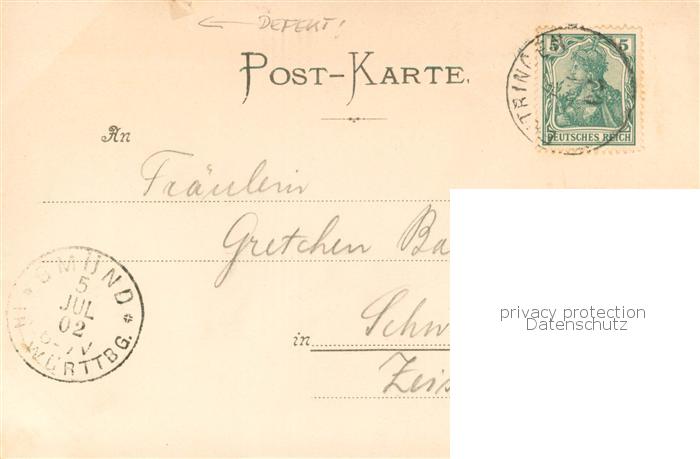 ← DEFEKT!
POST-KARTE.
5 5
DEUTSCHES REICH
An
Fräulein
Gretchen Ba
in Schw
Zeis
GMÜND
5
JUL
02
6-7 V
IN WÜRTTBG.
privacy protection
Datenschutz